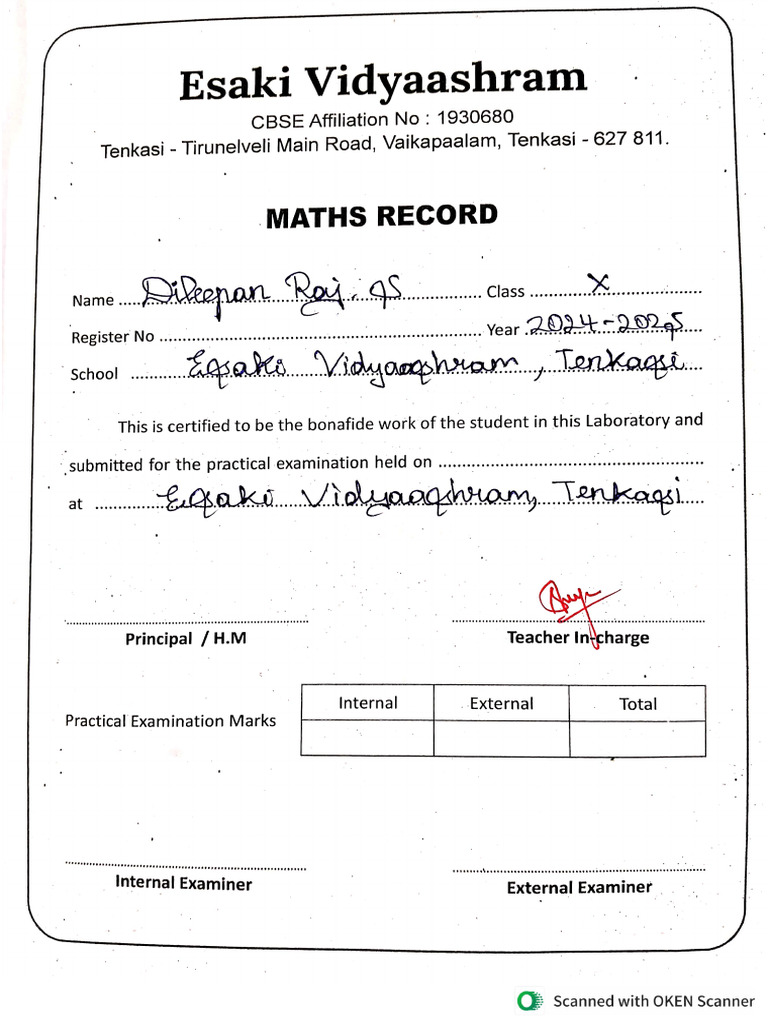 Esaki Vidyaashram
CBSE Affiliation No : 1930680
Tenkasi - Tirunelveli Main Road, Vaikapaalam, Tenkasi - 627 811.
MATHS RECORD
Name Dileepan Raj. S Class X
Register No Year 2024-2025
School Esaki Vidyaashram, Tenkasi
This is certified to be the bonafide work of the student in this Laboratory and
submitted for the practical examination held on
at Esaki Vidyaashram, Tenkasi
Principal / H.M Teacher In-charge
Internal External Total
Practical Examination Marks
Internal Examiner External Examiner
Scanned with OKEN Scanner